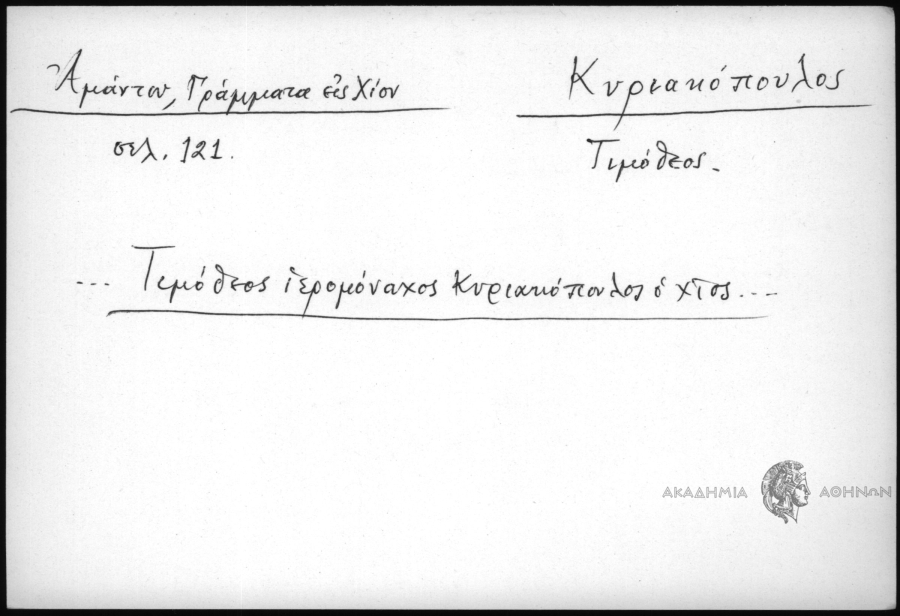 Ἀμάντου, Γράμματα εἰς Χίον
σελ. 121.
Κυριακόπουλος
Τιμόθεος.
... Τιμόθεος ἱερομόναχος Κυριακόπουλος ὁ χῖος...
ΑΚΑΔΗΜΙΑ ΑΘΗΝΩΝ